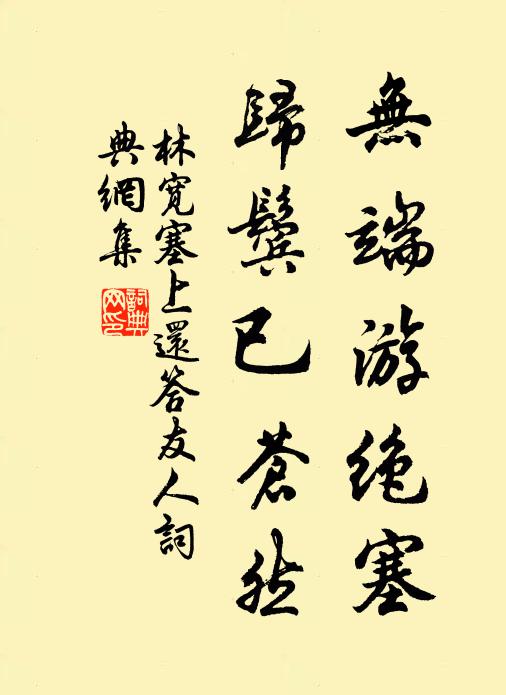 無端游絶塞
歸鬢已蒼然
林寬塞上還答友人詞
典網集
詞典网印